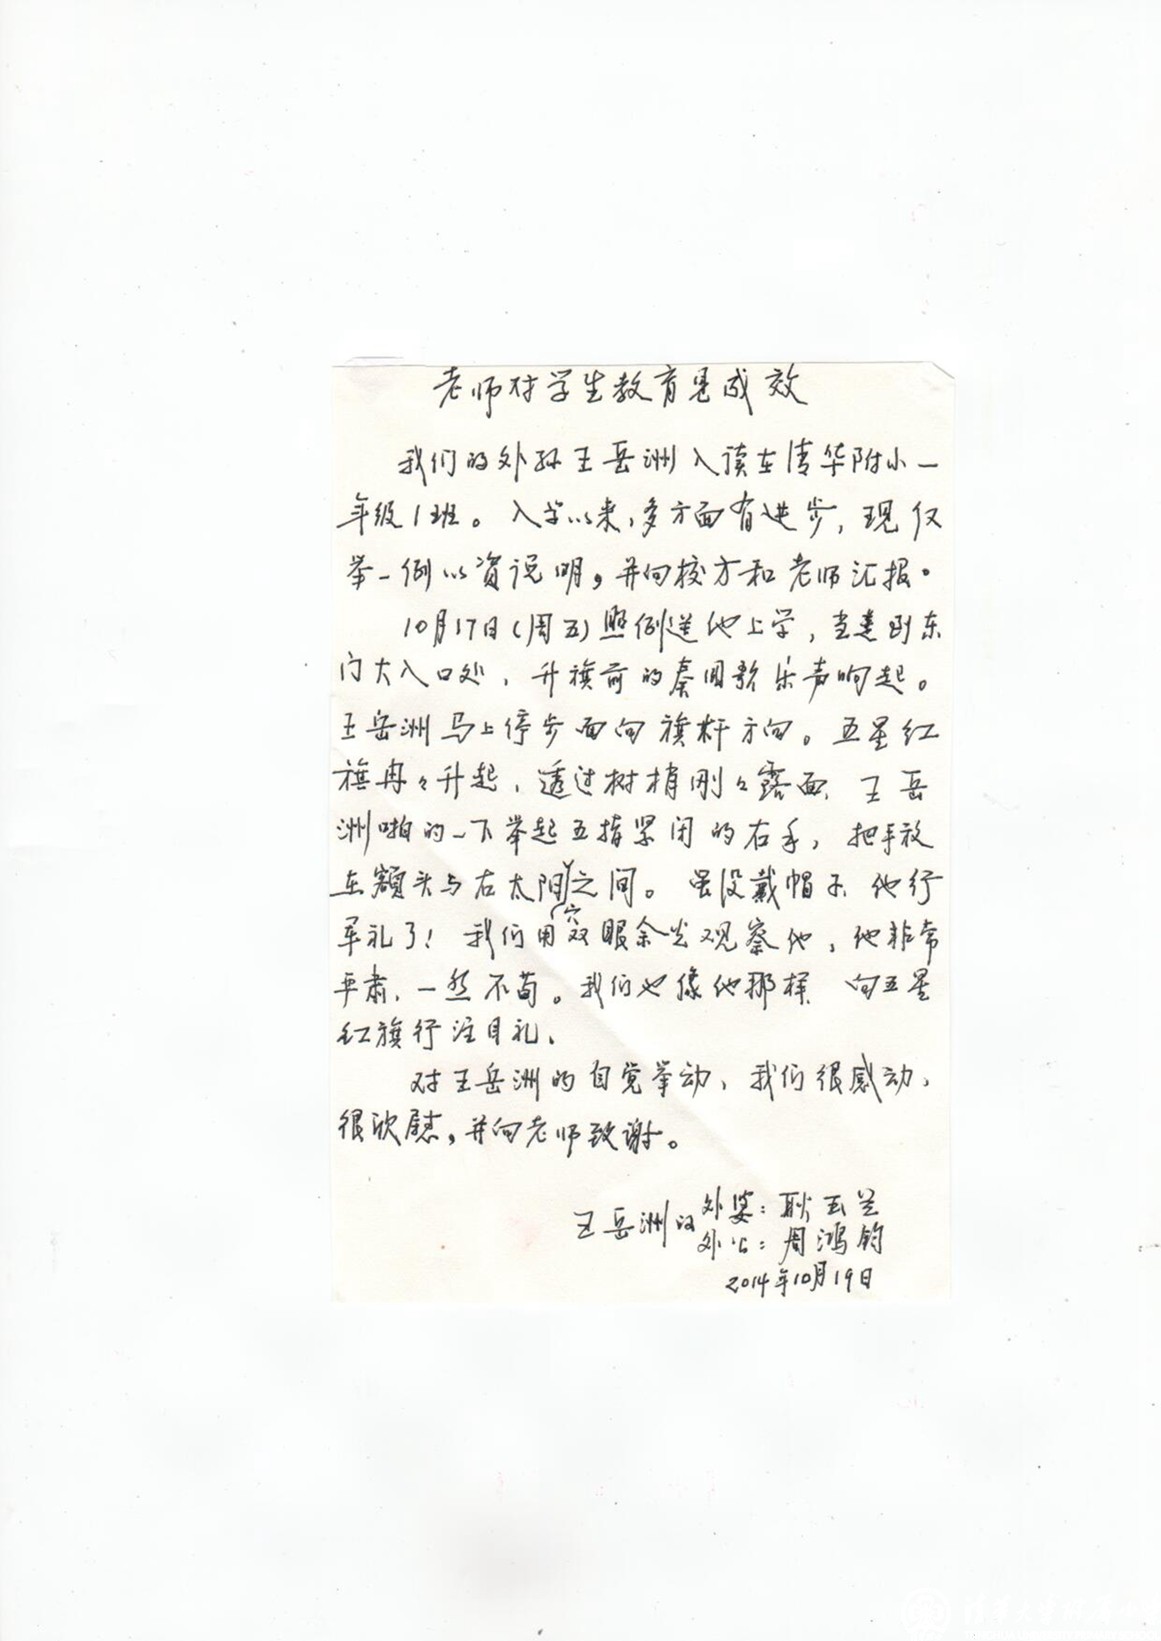 老师对学生教育见成效
我们的外孙王岳洲入读在清华附小一
年级1班。入学以来,多方面有进步,现仅
举一例以资说明,并向校方和老师汇报。
10月17日(周五)照例送他上学,当走到东
门大入口处,升旗前的奏国歌乐声响起。
王岳洲马上停步面向旗杆方向。五星红
旗冉々升起,透过树梢刚々露面,王岳
洲啪的一下举起五指紧闭的右手,把手放
在额头与右太阳穴之间。虽没戴帽子,他行
军礼了!我们用双眼余光观察他,他非常
严肃,一丝不苟。我们也像他那样,向五星
红旗行注目礼。
对王岳洲的自觉举动,我们很感动,
很欣慰,并向老师致谢。
王岳洲的外婆:耿玉兰
外公:周鸿钧
2014年10月19日
清华大学附属小学